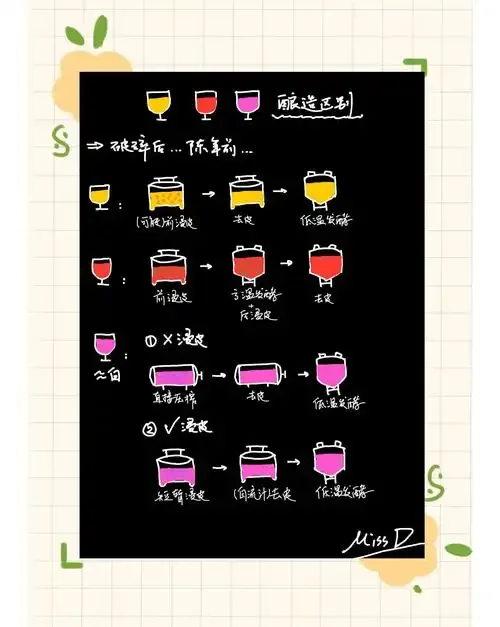 酿造区别
⇒ 破碎后...陈年前...
: (可能)前浸皮 → 去皮 → 低温发酵
: 前浸皮 → 高温发酵 + 后浸皮 → 去皮
≈白 : ① × 浸皮
直接压榨 → 去皮 → 低温发酵
② √ 浸皮
短暂浸皮 → (自流汁)去皮 → 低温发酵
Miss D